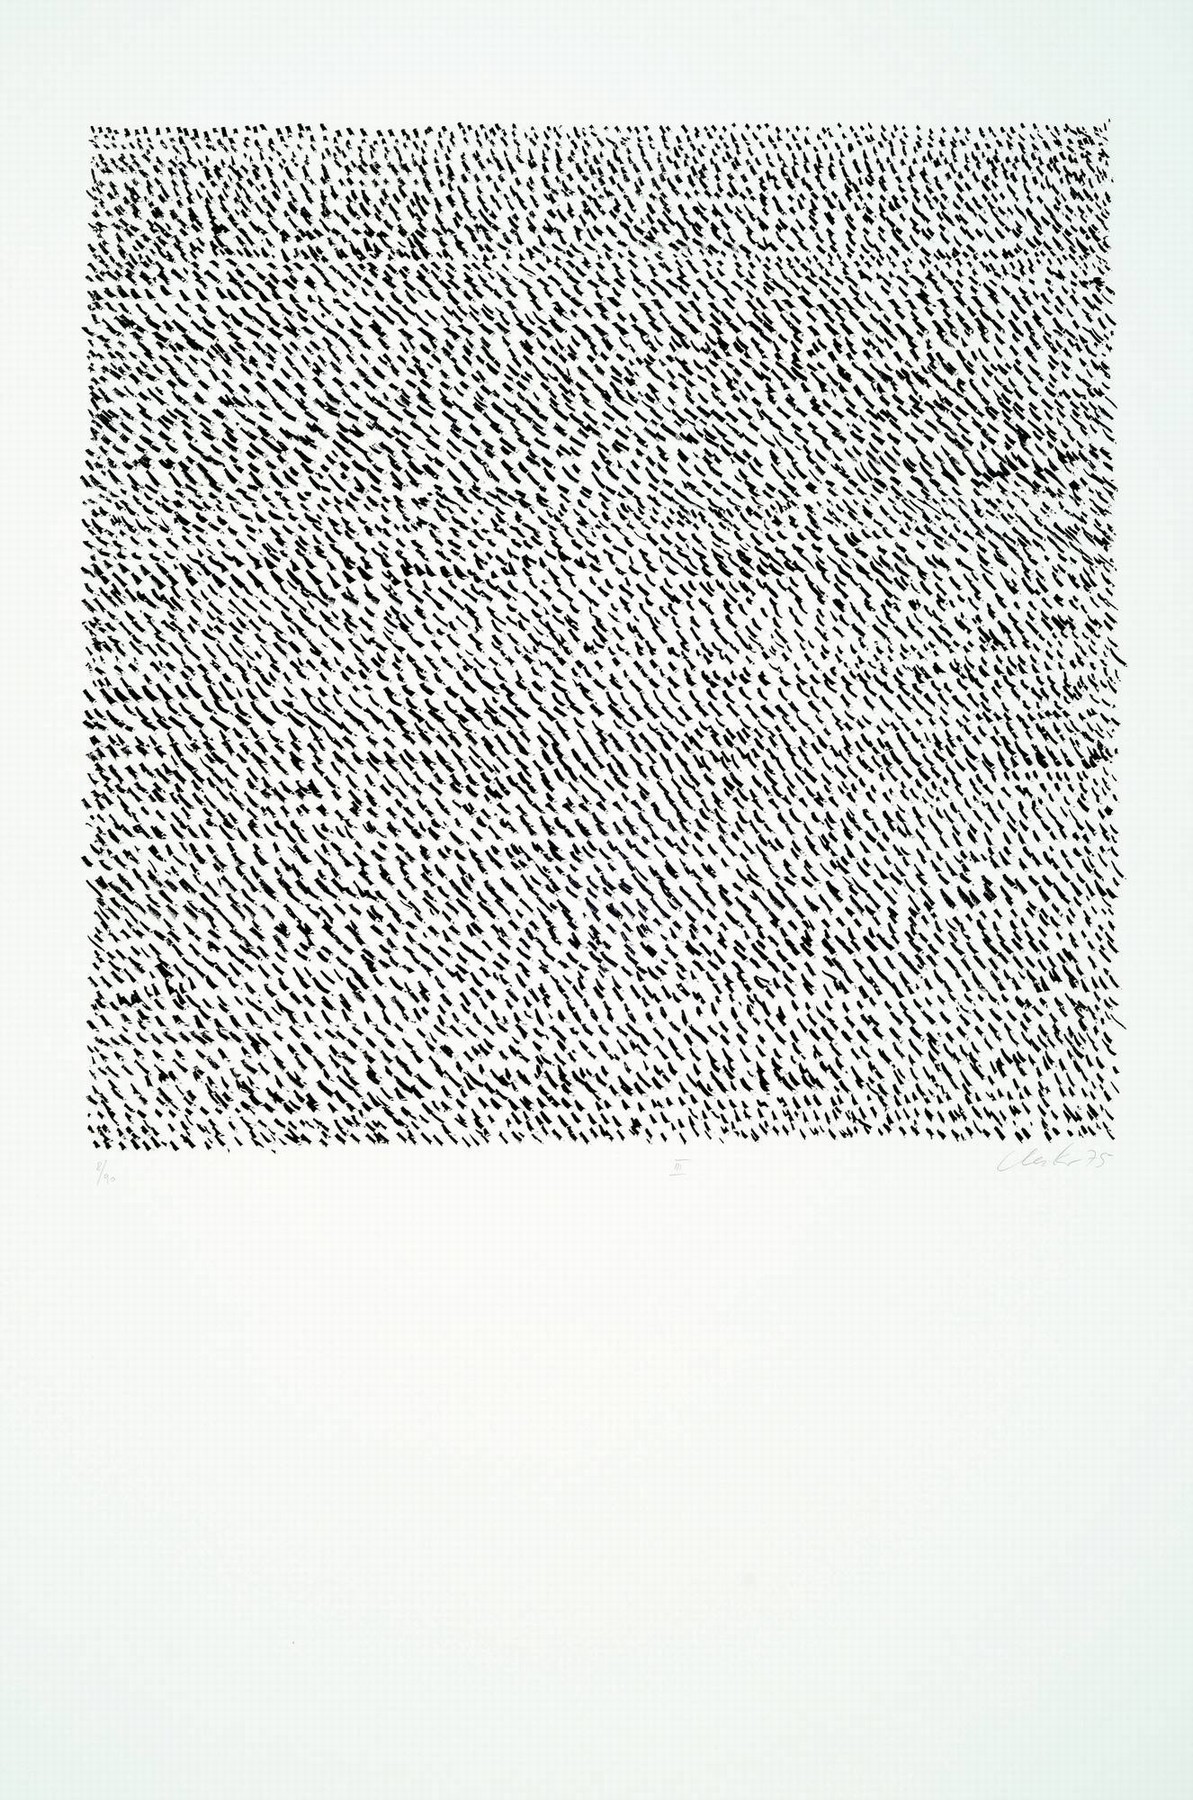 8/90
III
Uecker 75